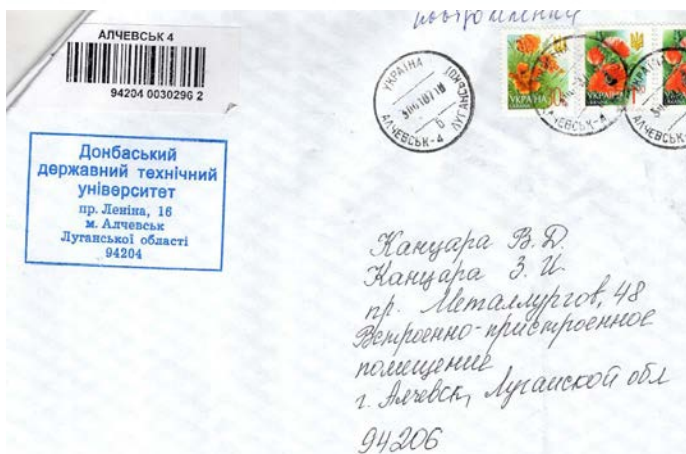 повідомлення
АЛЧЕВСЬК 4
94204 0030296 2
Донбаський
державний технічний
університет
пр. Леніна, 16
м. Алчевськ
Луганської області
94204
УКРАЇНА
ЛУГАНСЬКОЇ
АЛЧЕВСЬК-4
б
УКРАЇНА
УКРАЇНА
АЛЧЕВСЬК-4
Канцара В. Д.
Канцара З. И.
пр. Металлургов, 48
Встроенно-пристроенное
помещение
г. Алчевск, Луганской обл
94206